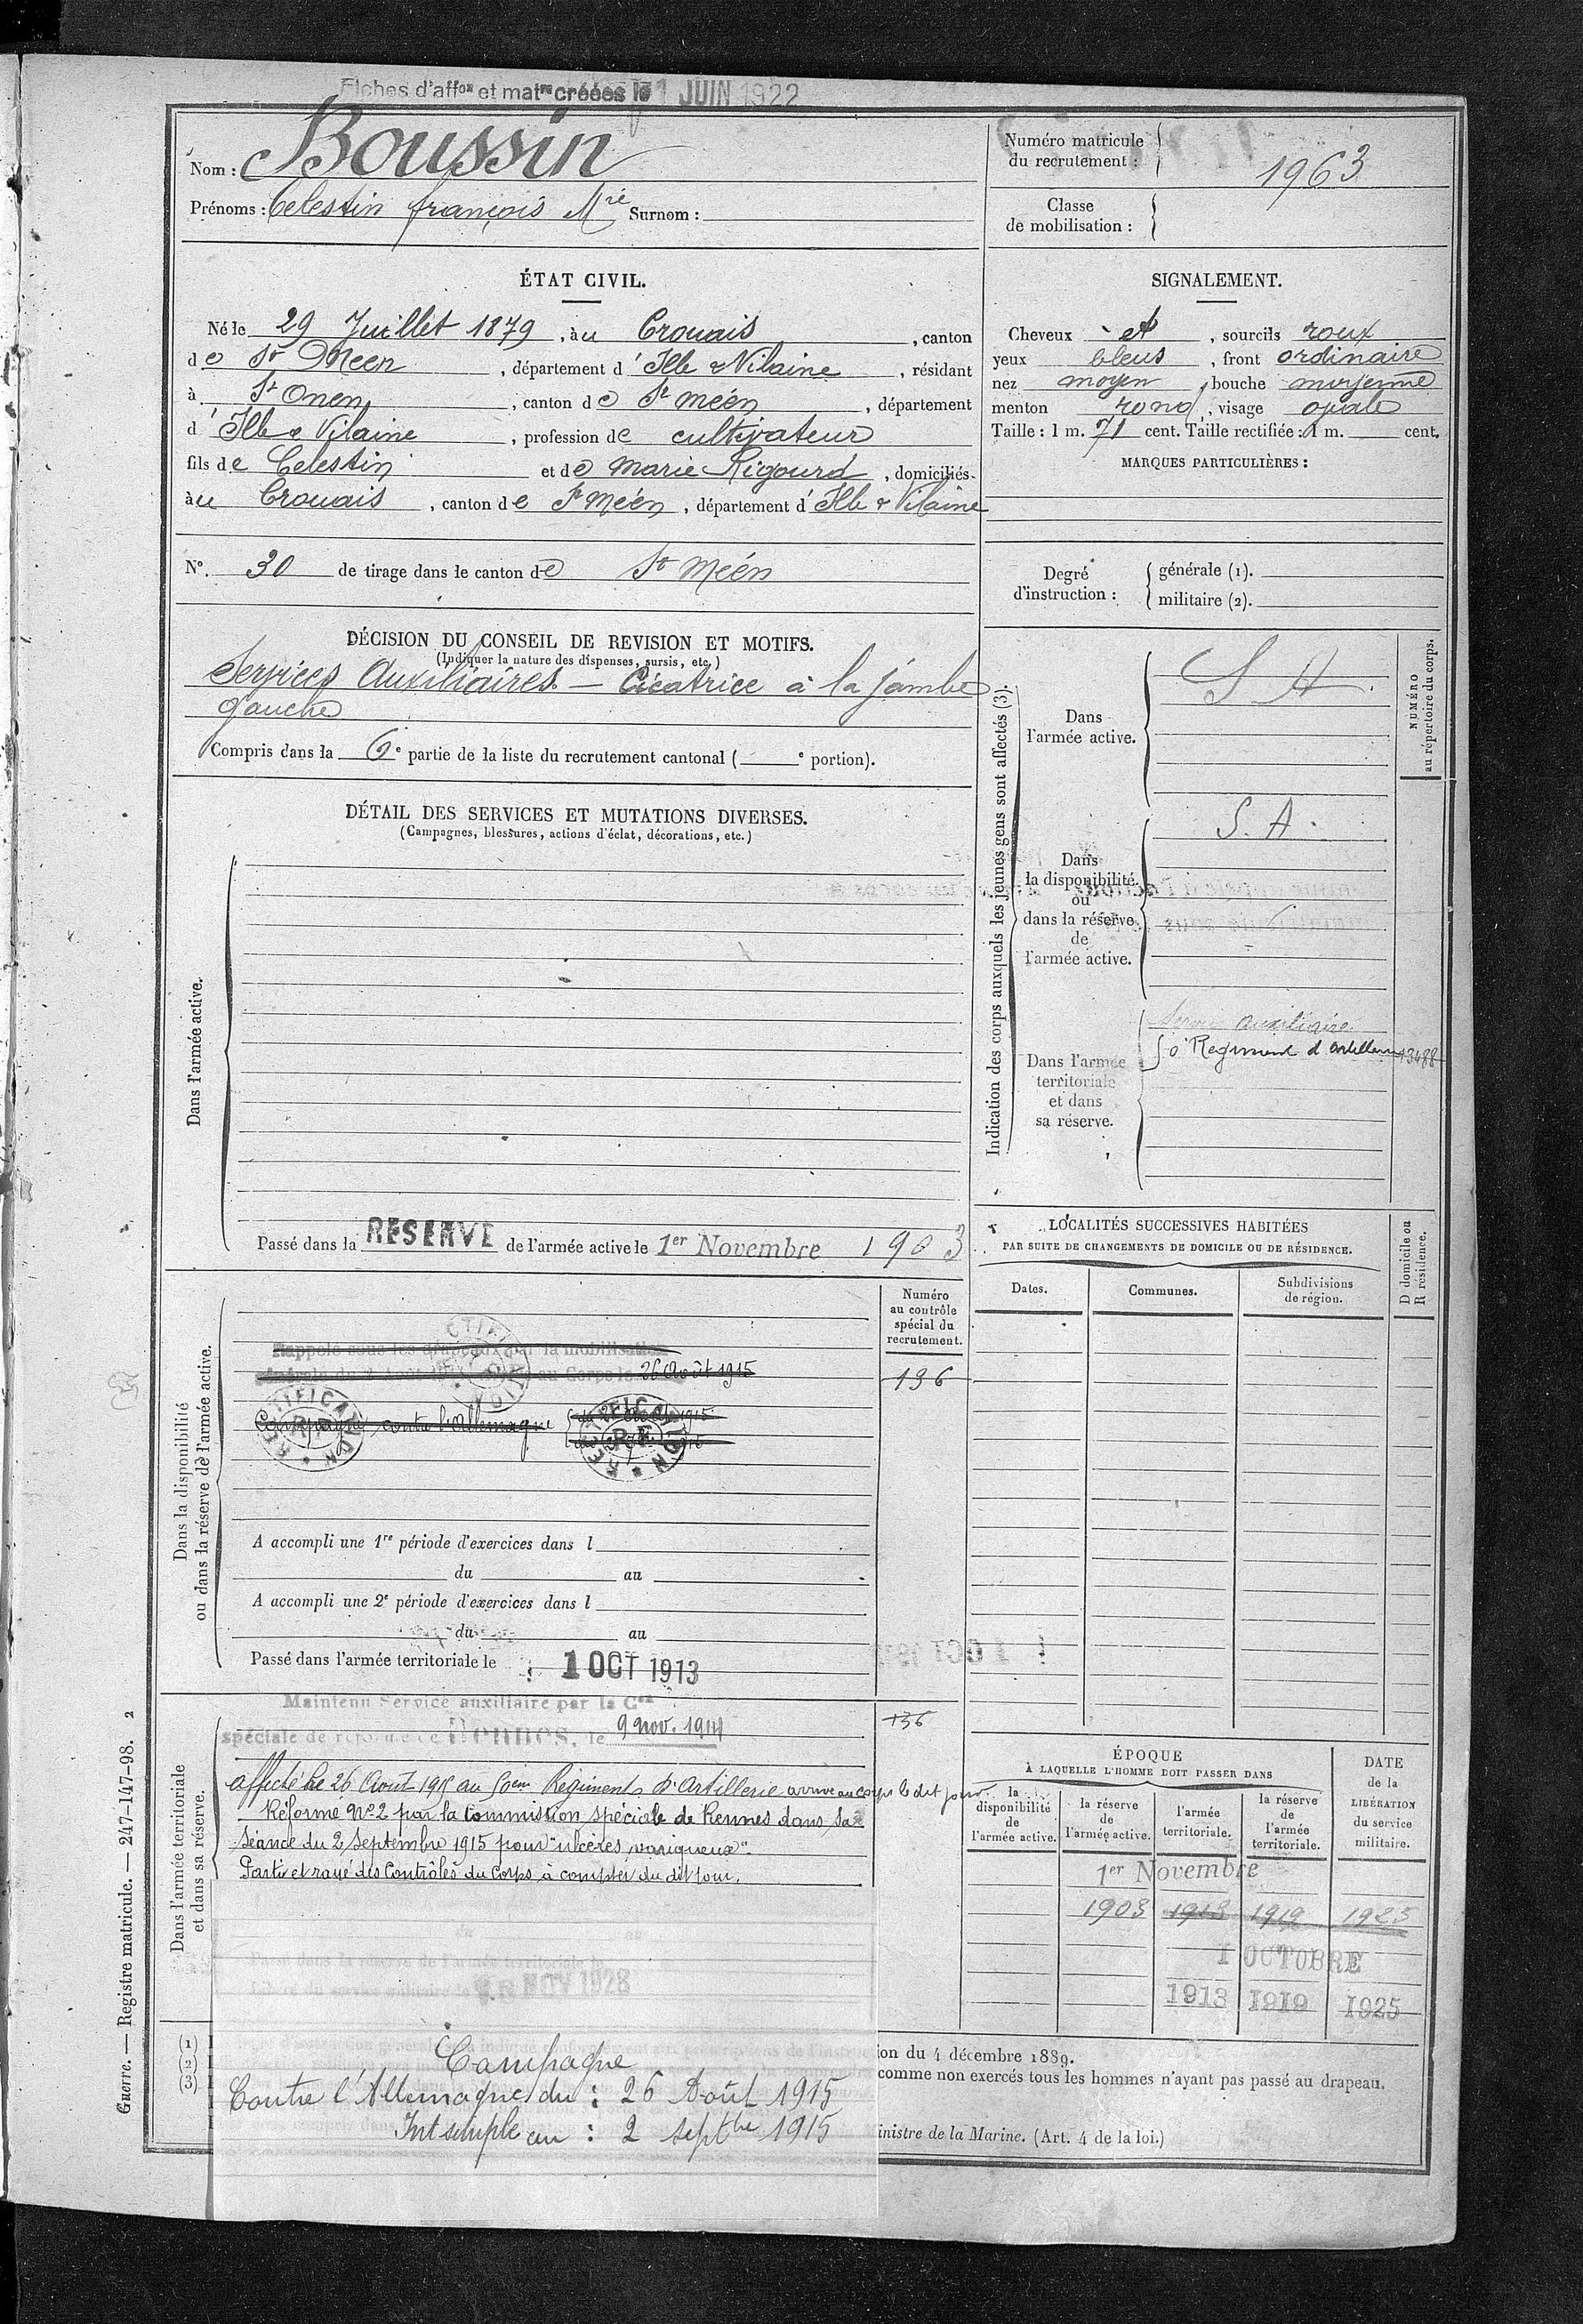 Fiches d'aff^on et mat^re créées le 1 JUIN 1922
Nom : Boussin
Prénoms : Celestin françois M^rie Surnom :
Numéro matricule
du recrutement :
1963
Classe
de mobilisation :
ÉTAT CIVIL.
Né le 29 Juillet 1879, à u Crouais, canton
de St Meen, département d'Ille & Vilaine, résidant
à St Onen, canton de St méen, département
d'Ille & Vilaine, profession de cultivateur
fils de Celestin et de marie Rigourd, domiciliés
à u Crouais, canton de St Méen, département d'Ille & Vilaine
N° 30 de tirage dans le canton de St Méen
SIGNALEMENT.
Cheveux et, sourcils roux
yeux bleus, front ordinaire
nez moyen, bouche moyenne
menton rond, visage ovale
Taille : 1 m. 71 cent. Taille rectifiée : 1 m. cent.
MARQUES PARTICULIÈRES :
Degré
d'instruction :
générale (1).
militaire (2).
DÉCISION DU CONSEIL DE REVISION ET MOTIFS.
(Indiquer la nature des dispenses, sursis, etc.)
Services Auxiliaires. — Cicatrice à la jambe
gauche
Compris dans la 6e partie de la liste du recrutement cantonal ( e portion).
DÉTAIL DES SERVICES ET MUTATIONS DIVERSES.
(Campagnes, blessures, actions d'éclat, décorations, etc.)
Dans l'armée active.
Passé dans la RESERVE de l'armée active le 1er Novembre 1903
Indication des corps auxquels les jeunes gens sont affectés (3).
NUMÉRO
au répertoire du corps.
Dans
l'armée active.
S A.
Dans
la disponibilité
ou
dans la réserve
de
l'armée active.
S. A.
Dans l'armée
territoriale
et dans
sa réserve.
Service auxiliaire
50e Regiment d'artillerie 13488
LOCALITÉS SUCCESSIVES HABITÉES
PAR SUITE DE CHANGEMENTS DE DOMICILE OU DE RÉSIDENCE.
D domicile ou
R résidence.
Dates.
Communes.
Subdivisions
de région.
Dans la disponibilité
ou dans la réserve de l'armée active.
Numéro
au contrôle
spécial du
recrutement.
136
Rappelé sous les drapeaux par la mobilisation
générale du 2 Août 1914 au Corps le 26 Août 1915
Campagne contre l'allemagne
RECTIFICATION
RECTIFICATION
RECTIFICATION
A accompli une 1re période d'exercices dans l
du au
A accompli une 2e période d'exercices dans l
du au
Passé dans l'armée territoriale le 1 OCT 1913
Dans l'armée territoriale
et dans sa réserve.
Maintenu Service auxiliaire par la C^on
spéciale de réforme de Rennes, le 9 nov. 1914
136
affecté le 26 Aout 1915 au 50eme Régiment d'Artillerie arrivé au corps le dit jour.
Réformé N°2 par la Commission spéciale de Rennes dans sa
séance du 2 Septembre 1915 pour "ulcères variqueux".
Parti et rayé des Contrôles du Corps à compter du dit jour.
Passé dans la réserve de l'armée territoriale le
Libéré du service militaire le NOV 1928
Campagne
Contre l'Allemagne du : 26 Août 1915
Int simple au : 2 sept^bre 1915
ÉPOQUE
À LAQUELLE L'HOMME DOIT PASSER DANS
la
disponibilité
de
l'armée active.
la réserve
de
l'armée active.
l'armée
territoriale.
la réserve
de
l'armée
territoriale.
DATE
de la
LIBÉRATION
du service
militaire.
1er Novembre
1903 1913 1919 1925
1 OCTOBRE
1913 1919 1925
(1)
(2)
(3)
ion du 4 décembre 1889.
comme non exercés tous les hommes n'ayant pas passé au drapeau.
inistre de la Marine. (Art. 4 de la loi.)
Guerre. — Registre matricule. — 247-147-98. 2